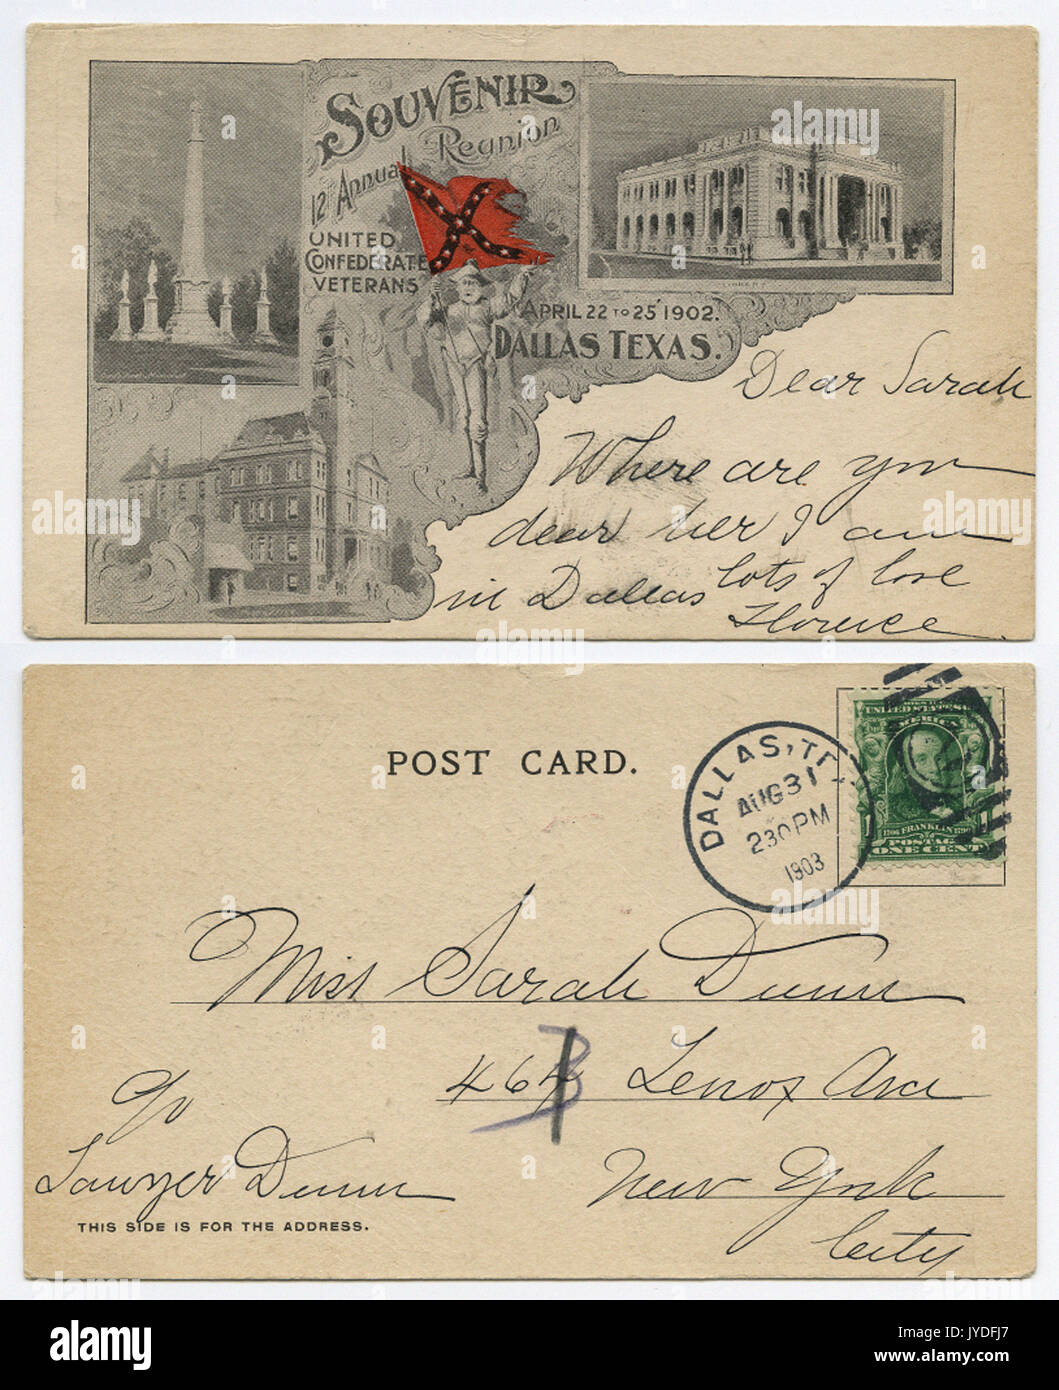 SOUVENIR
Reunion
12th Annual
UNITED
CONFEDERATE
VETERANS
APRIL 22 TO 25 1902.
DALLAS TEXAS.
Dear Sarah
Where are you
dear her I am
in Dallas lots of love
Florence
POST CARD.
DALLAS, TE
AUG 31
230PM
1903
UNITED STATES
AMERICA
1706 FRANKLIN 1790
POSTAGE
ONE CENT
Miss Sarah Dunn
464 Lenox Ave
New York
City
Lawyer Dunn
THIS SIDE IS FOR THE ADDRESS.
alamy
Image ID: JYDFJ7
www.alamy.com